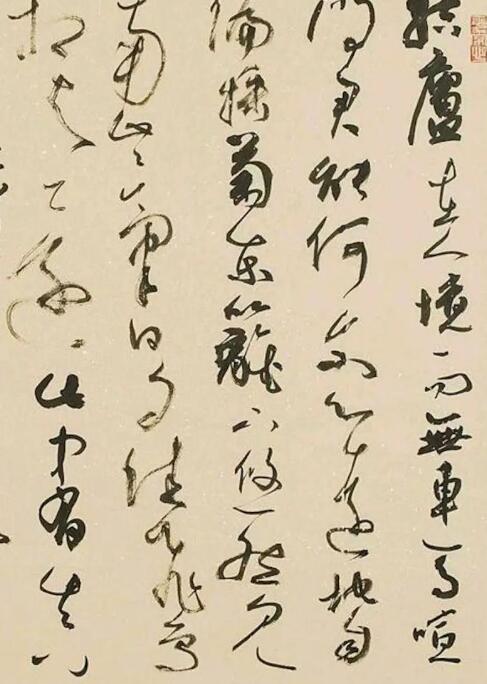 結廬在人境而無車馬喧
問君能何爾心遠地自
偏採菊東籬下悠然見
南山々氣日夕佳飛鳥
相與還此中有真